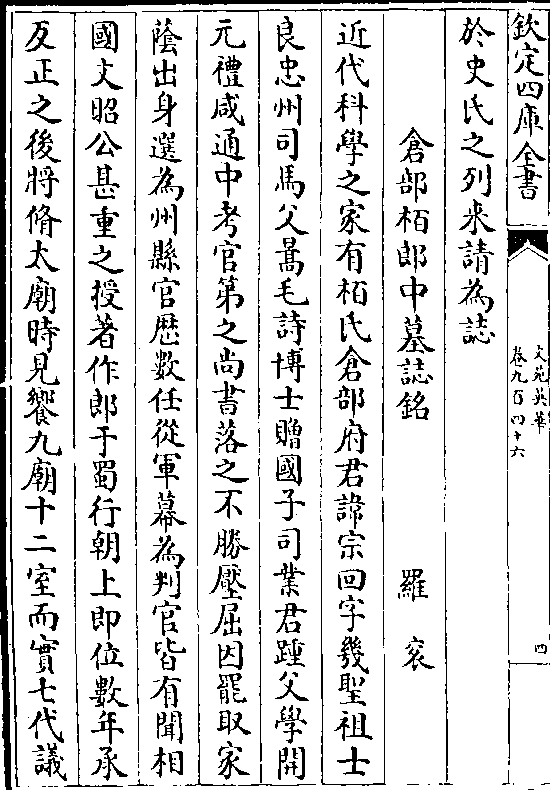 欽定四庫全書
文苑英華
卷九百四十六
四
於史氏之列来請為誌
倉部栢郎中墓誌銘 羅衮
近代科學之家有栢氏倉部府君諱宗回字幾聖祖士
良忠州司馬父暠毛詩博士贈國子司業君踵父學開
元禮咸通中考官第之尚書落之不勝壓屈因罷取家
蔭出身選為州縣官歴數任從軍幕為判官皆有聞相
國文昭公甚重之授著作郎于蜀行朝上即位數年承
反正之後將脩太廟時見饗九廟十二室而實七代議